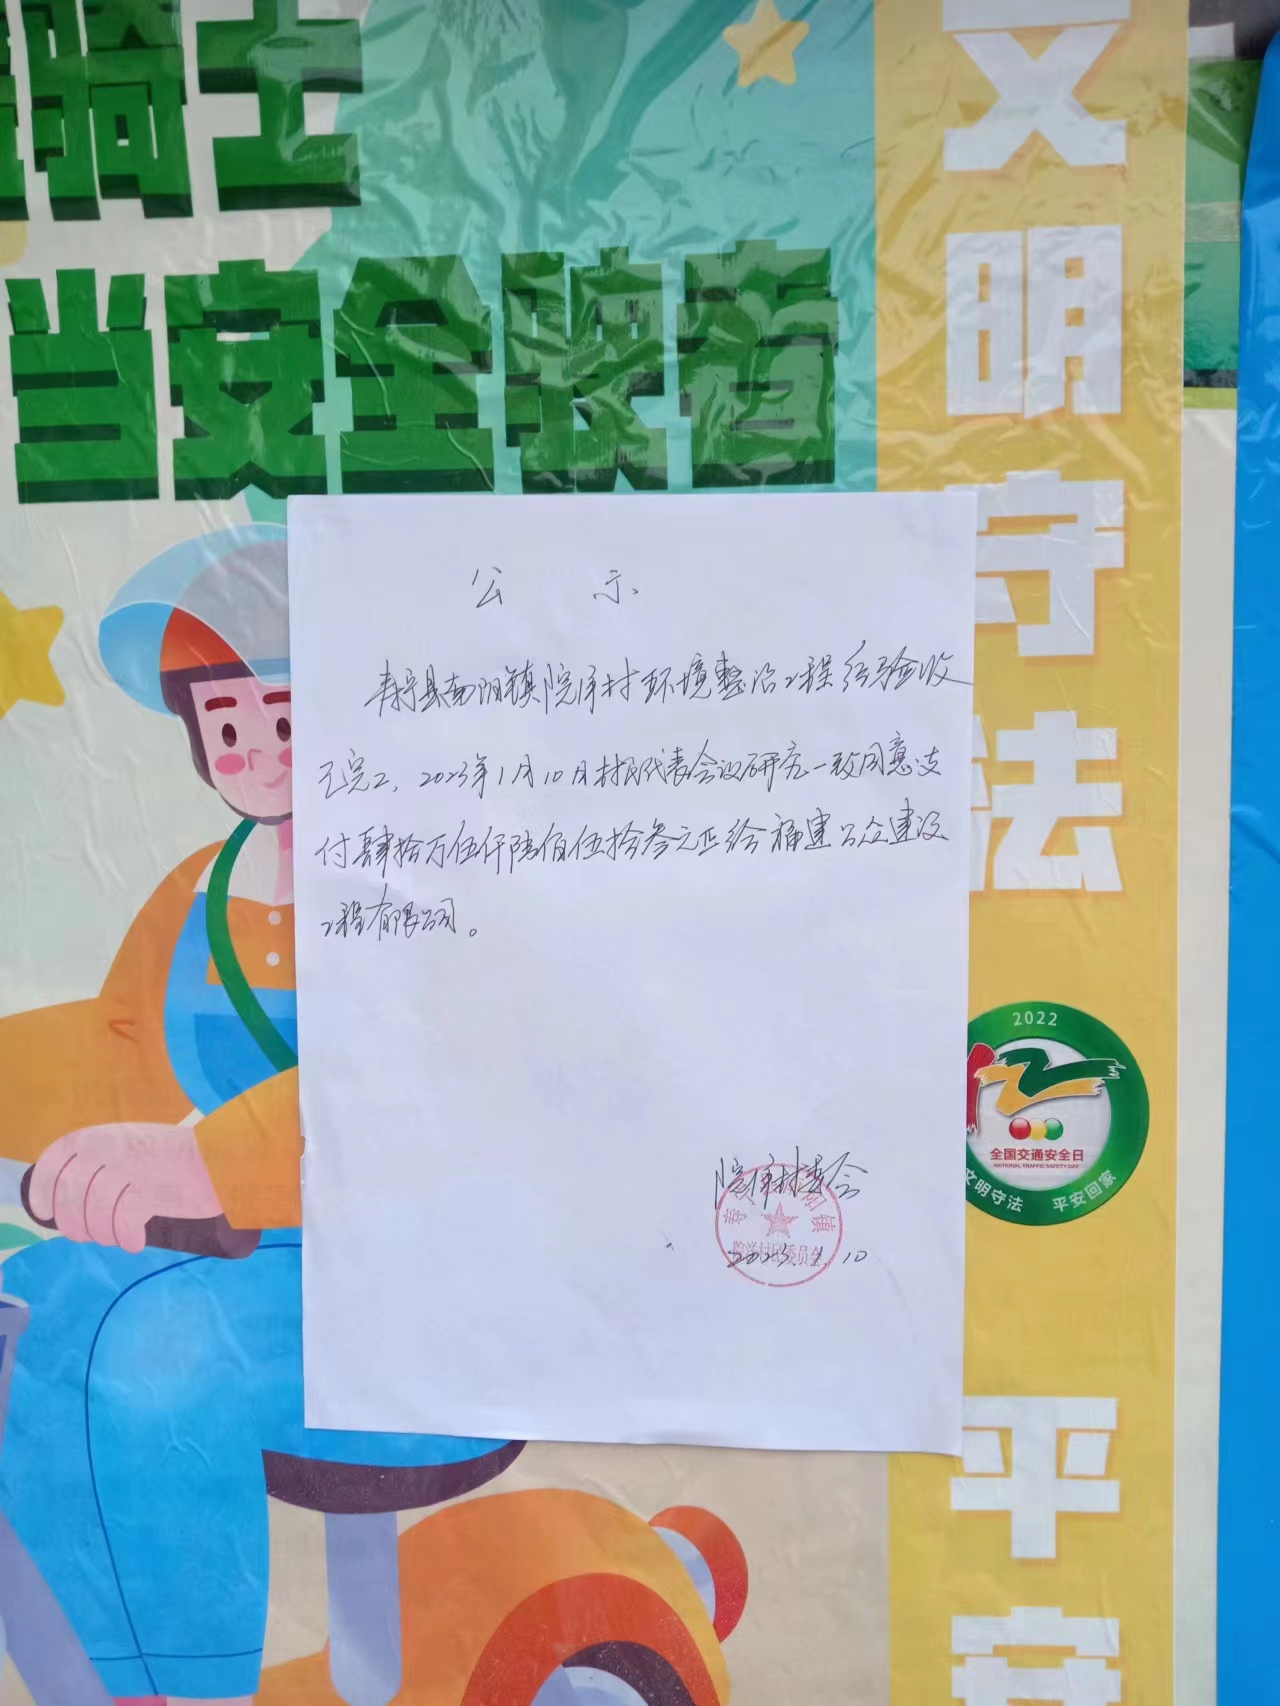 骑士
当安全
文明守法
公 示
寿宁县南阳镇院洋村环境整治工程经验收
已完工，2023年1月10日村民代表会议研究一致同意支
付肆拾万伍仟陆佰伍拾叁元正给福建公众建设
工程有限公司。
院洋村委会
2023.1.10
寿 阳镇
院洋村民委员会
2022
12
全国交通安全日
NATIONAL TRAFFIC SAFETY DAY
文明守法 平安回家
平安